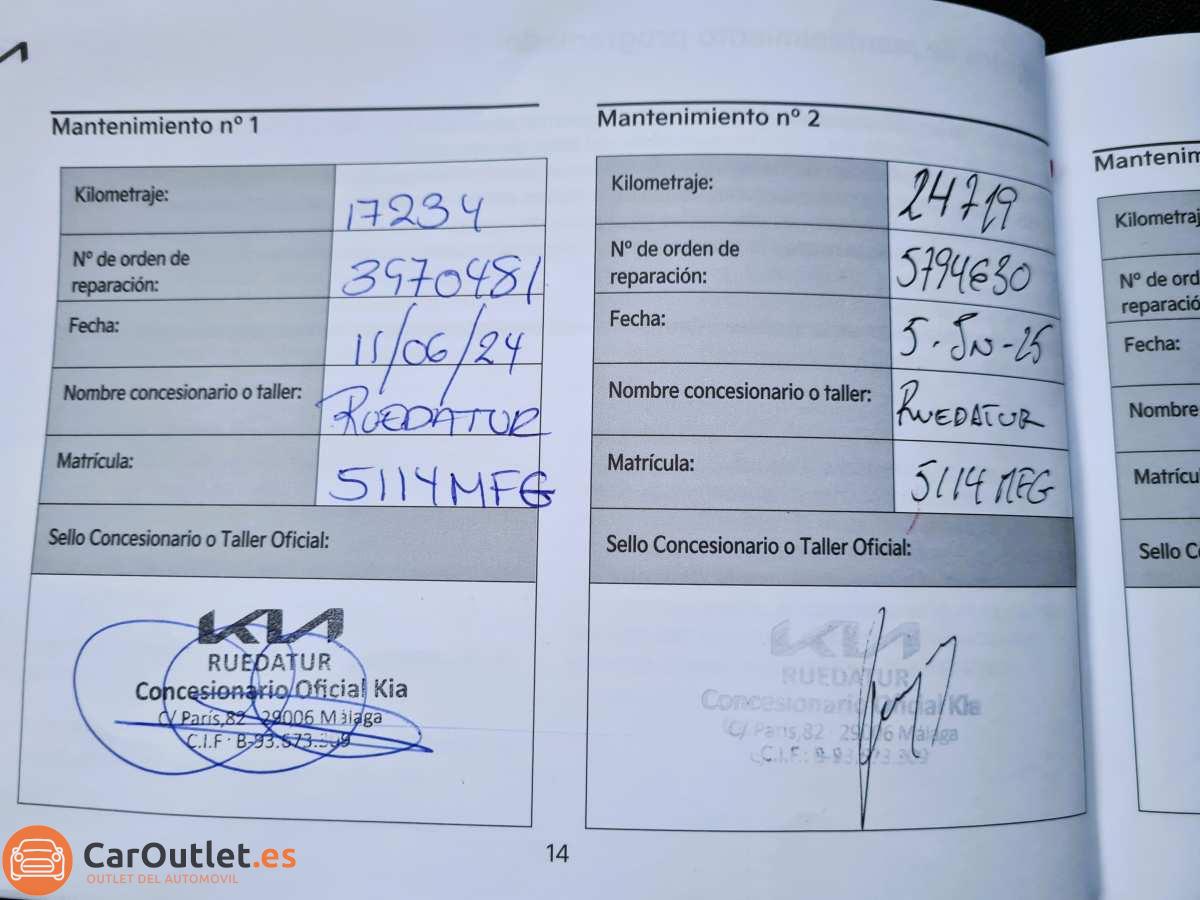 Mantenimiento nº 1
Kilometraje:
17234
Nº de orden de
reparación:
3970481
Fecha:
11/06/24
Nombre concesionario o taller:
RUEDATUR
Matrícula:
5114MFG
Sello Concesionario o Taller Oficial:
KIA
RUEDATUR
Concesionario Oficial Kia
C/ París,82 - 29006 Málaga
Mantenimiento nº 2
Kilometraje:
24719
Nº de orden de
reparación:
5794630
Fecha:
5-JN-25
Nombre concesionario o taller:
RUEDATUR
Matrícula:
5114 MFG
Sello Concesionario o Taller Oficial:
KIA
RUEDATUR
Concesionario Oficial Kia
C/ París,82 - 29006 Málaga
Mantenim
Kilometraj
Nº de ord
reparació
Fecha:
Nombre
Matrícu
Sello C
14
CarOutlet.es
OUTLET DEL AUTOMOVIL